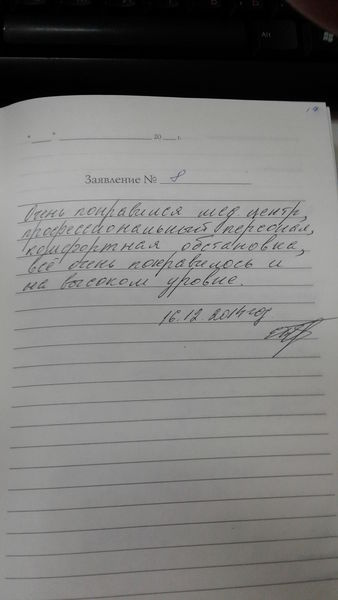 Alt
"___" ____________ 20___ г.
Заявление № 8
Очень понравился мед центр,
профессиональный персонал,
комфортная обстановка,
всё очень понравилось и
на высоком уровне.
16.12.2014 год